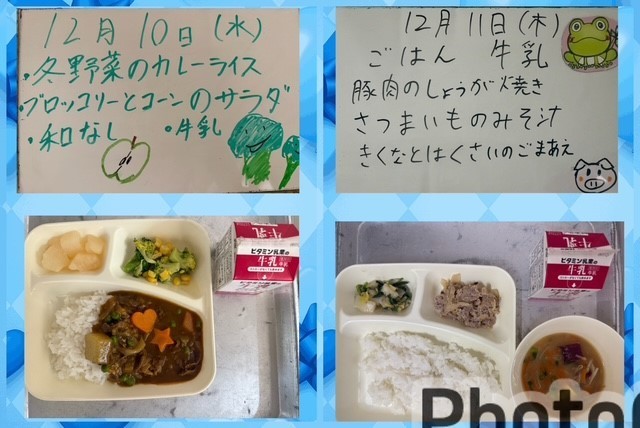 12月10日(水)
・冬野菜のカレーライス
・ブロッコリーとコーンのサラダ
・和なし ・牛乳
12月11日(木)
ごはん 牛乳
豚肉のしょうが焼き
さつまいものみそ汁
きくなとはくさいのごまあえ
ビタミン乳業の
牛乳
ビタミン乳業の
牛乳
Photo